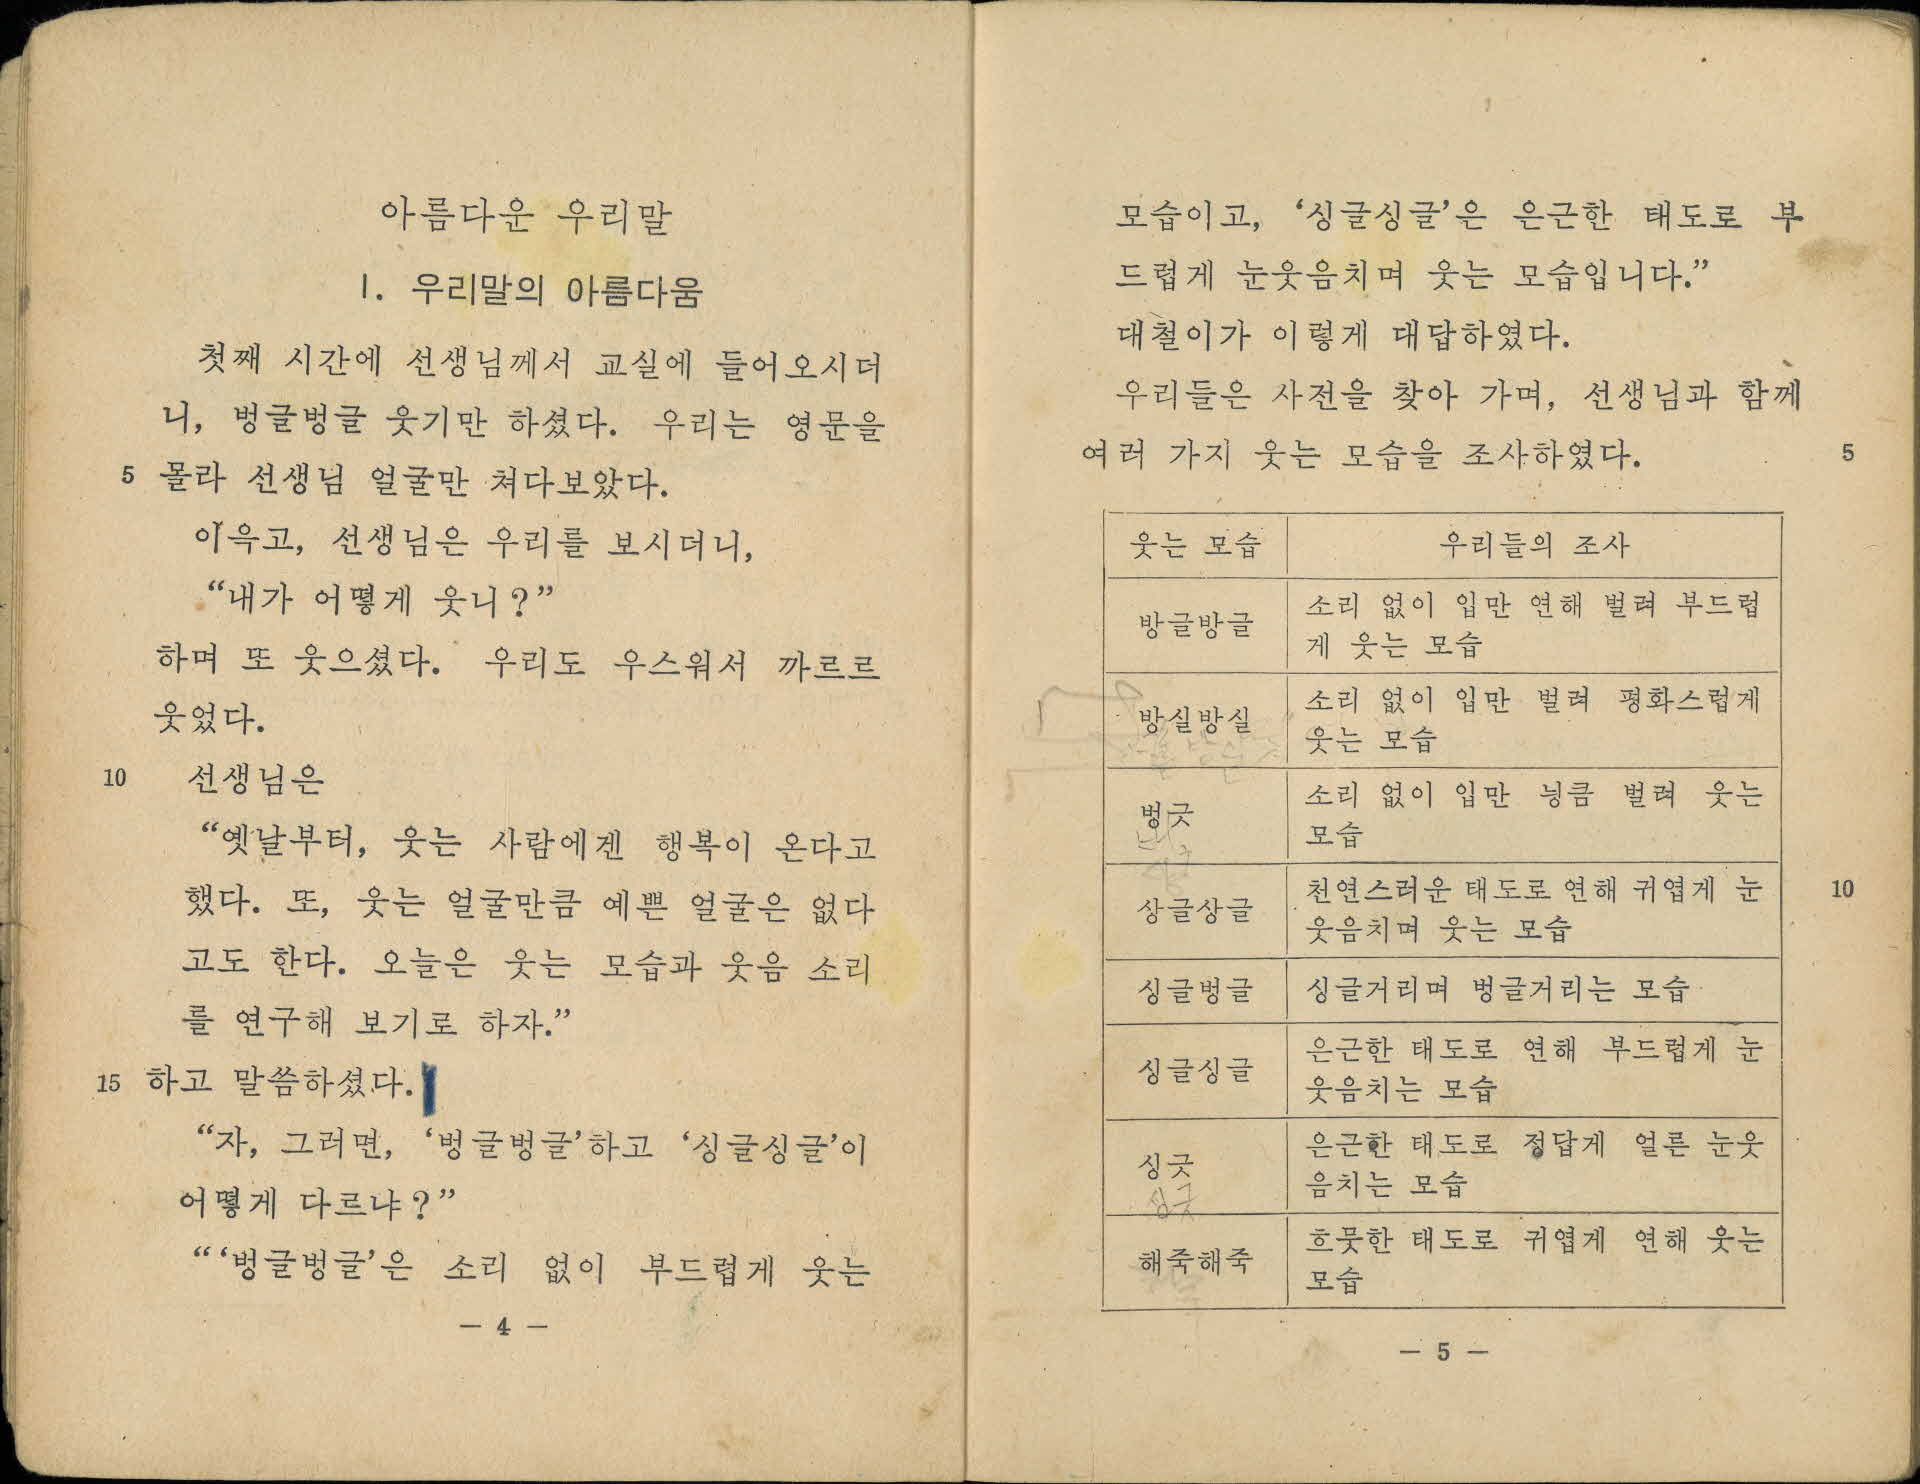 아름다운 우리말
1. 우리말의 아름다움
첫째 시간에 선생님께서 교실에 들어오시더
니, 벙글벙글 웃기만 하셨다. 우리는 영문을
5 몰라 선생님 얼굴만 쳐다보았다.
이윽고, 선생님은 우리를 보시더니,
“내가 어떻게 웃니?”
하며 또 웃으셨다. 우리도 우스워서 까르르
웃었다.
10 선생님은
“옛날부터, 웃는 사람에겐 행복이 온다고
했다. 또, 웃는 얼굴만큼 예쁜 얼굴은 없다
고도 한다. 오늘은 웃는 모습과 웃음 소리
를 연구해 보기로 하자.”
15 하고 말씀하셨다.
“자, 그러면, ‘벙글벙글’하고 ‘싱글싱글’이
어떻게 다르냐?”
“‘벙글벙글’은 소리 없이 부드럽게 웃는
— 4 —
모습이고, ‘싱글싱글’은 은근한 태도로 부
드럽게 눈웃음치며 웃는 모습입니다.”
대철이가 이렇게 대답하였다.
우리들은 사전을 찾아 가며, 선생님과 함께
여러 가지 웃는 모습을 조사하였다. 5
웃는 모습 우리들의 조사
방글방글 소리 없이 입만 연해 벌려 부드럽
게 웃는 모습
방실방실 소리 없이 입만 벌려 평화스럽게
웃는 모습
벙긋 소리 없이 입만 닁큼 벌려 웃는
모습
상글상글 천연스러운 태도로 연해 귀엽게 눈 10
웃음치며 웃는 모습
싱글벙글 싱글거리며 벙글거리는 모습
싱글싱글 은근한 태도로 연해 부드럽게 눈
웃음치는 모습
싱긋 은근한 태도로 정답게 얼른 눈웃
음치는 모습
싱긋
해죽해죽 흐뭇한 태도로 귀엽게 연해 웃는
모습
— 5 —